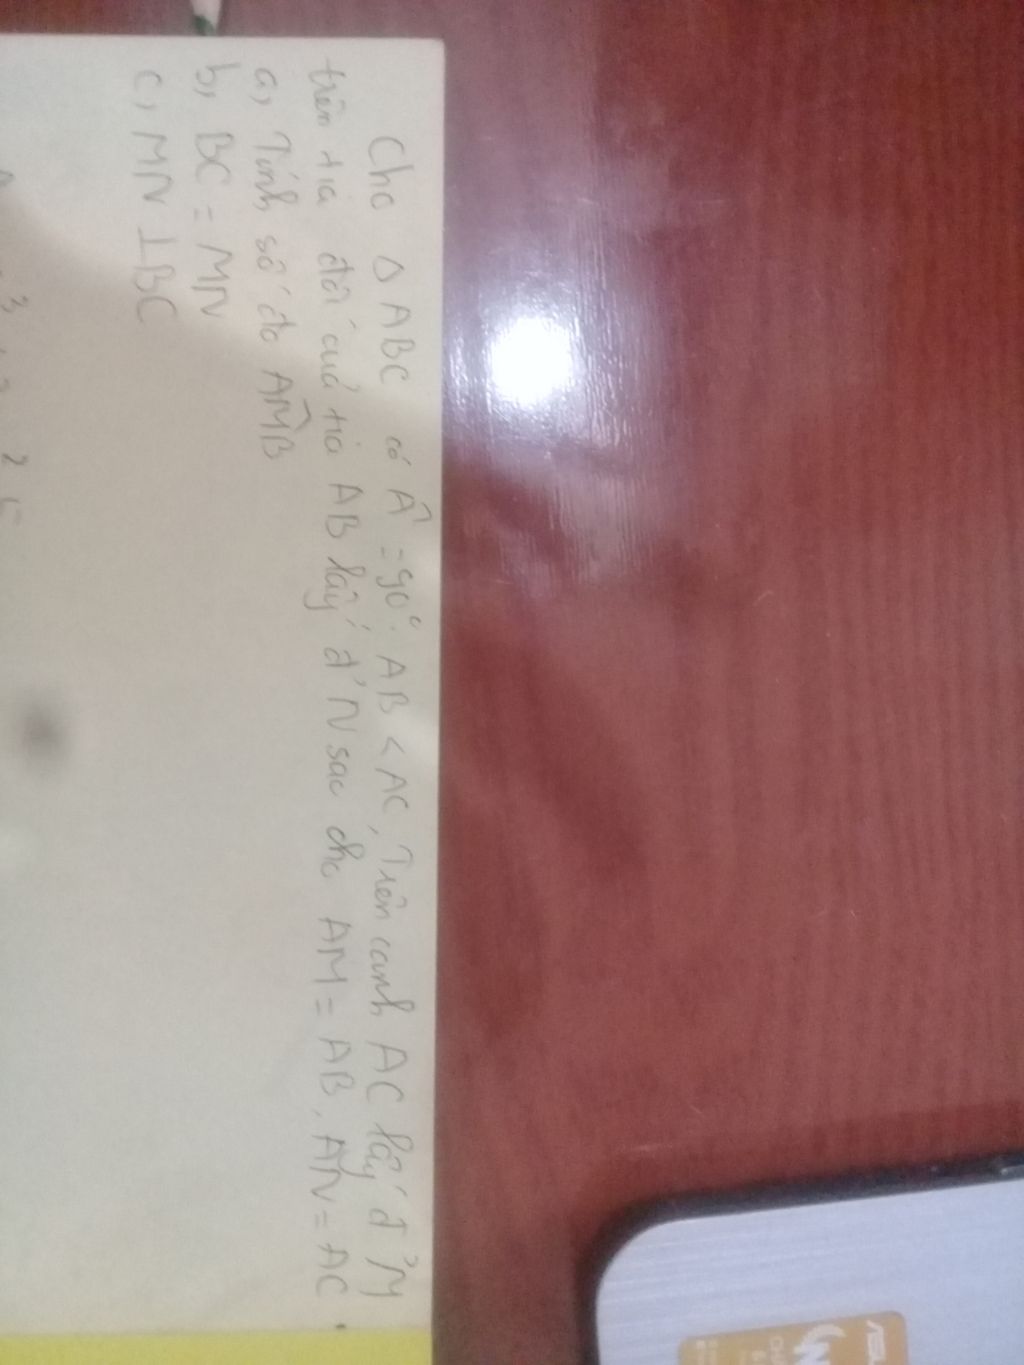 Cho Δ ABC có Â = 90°. AB < AC, Trên cạnh AC lấy đ' M
trên tia đối của tia AB lấy đ' N sao cho AM = AB, AN = AC.
a, Tính số đo AMB
b, BC = MN
c, MN ⊥ BC
3 2
ASUS